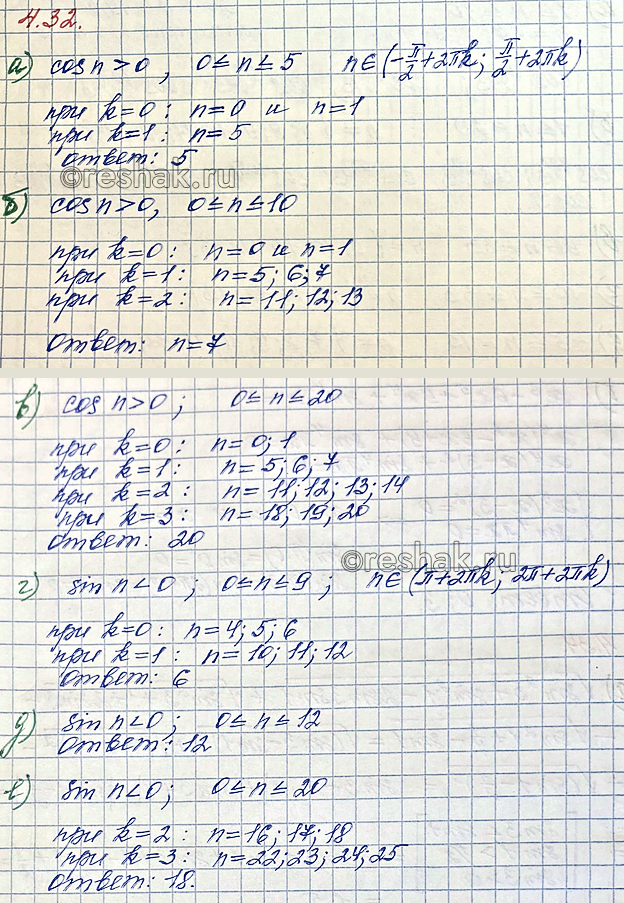 4.32.
а) cos n > 0 , 0 ≤ n ≤ 5 n ∈ (-π/2 + 2πk ; π/2 + 2πk)
при k=0 : n=0 и n=1
при k=1 : n=5
ответ: 5
©reshak.ru
б) cos n > 0, 0 ≤ n ≤ 10
при k=0 : n=0 и n=1
при k=1: n=5; 6; 7
при k=2 : n=11; 12; 13
Ответ: n=7
в) cos n > 0 ; 0 ≤ n ≤ 20
при k=0 : n=0; 1
при k=1 : n=5; 6; 7
при k=2 : n=11; 12; 13; 14
при k=3 : n=18; 19; 20
ответ: 20
©reshak.ru
г) sin n < 0 ; 0 ≤ n ≤ 9 ; n ∈ (π+2πk ; 2π+2πk)
при k=0 : n=4; 5; 6
при k=1 : n=10; 11; 12
ответ: 6
д) sin n < 0 ; 0 ≤ n ≤ 12
ответ: 12
е) sin n < 0 ; 0 ≤ n ≤ 20
при k=2 : n=16; 17; 18
при k=3 : n=22; 23; 24; 25
ответ: 18.